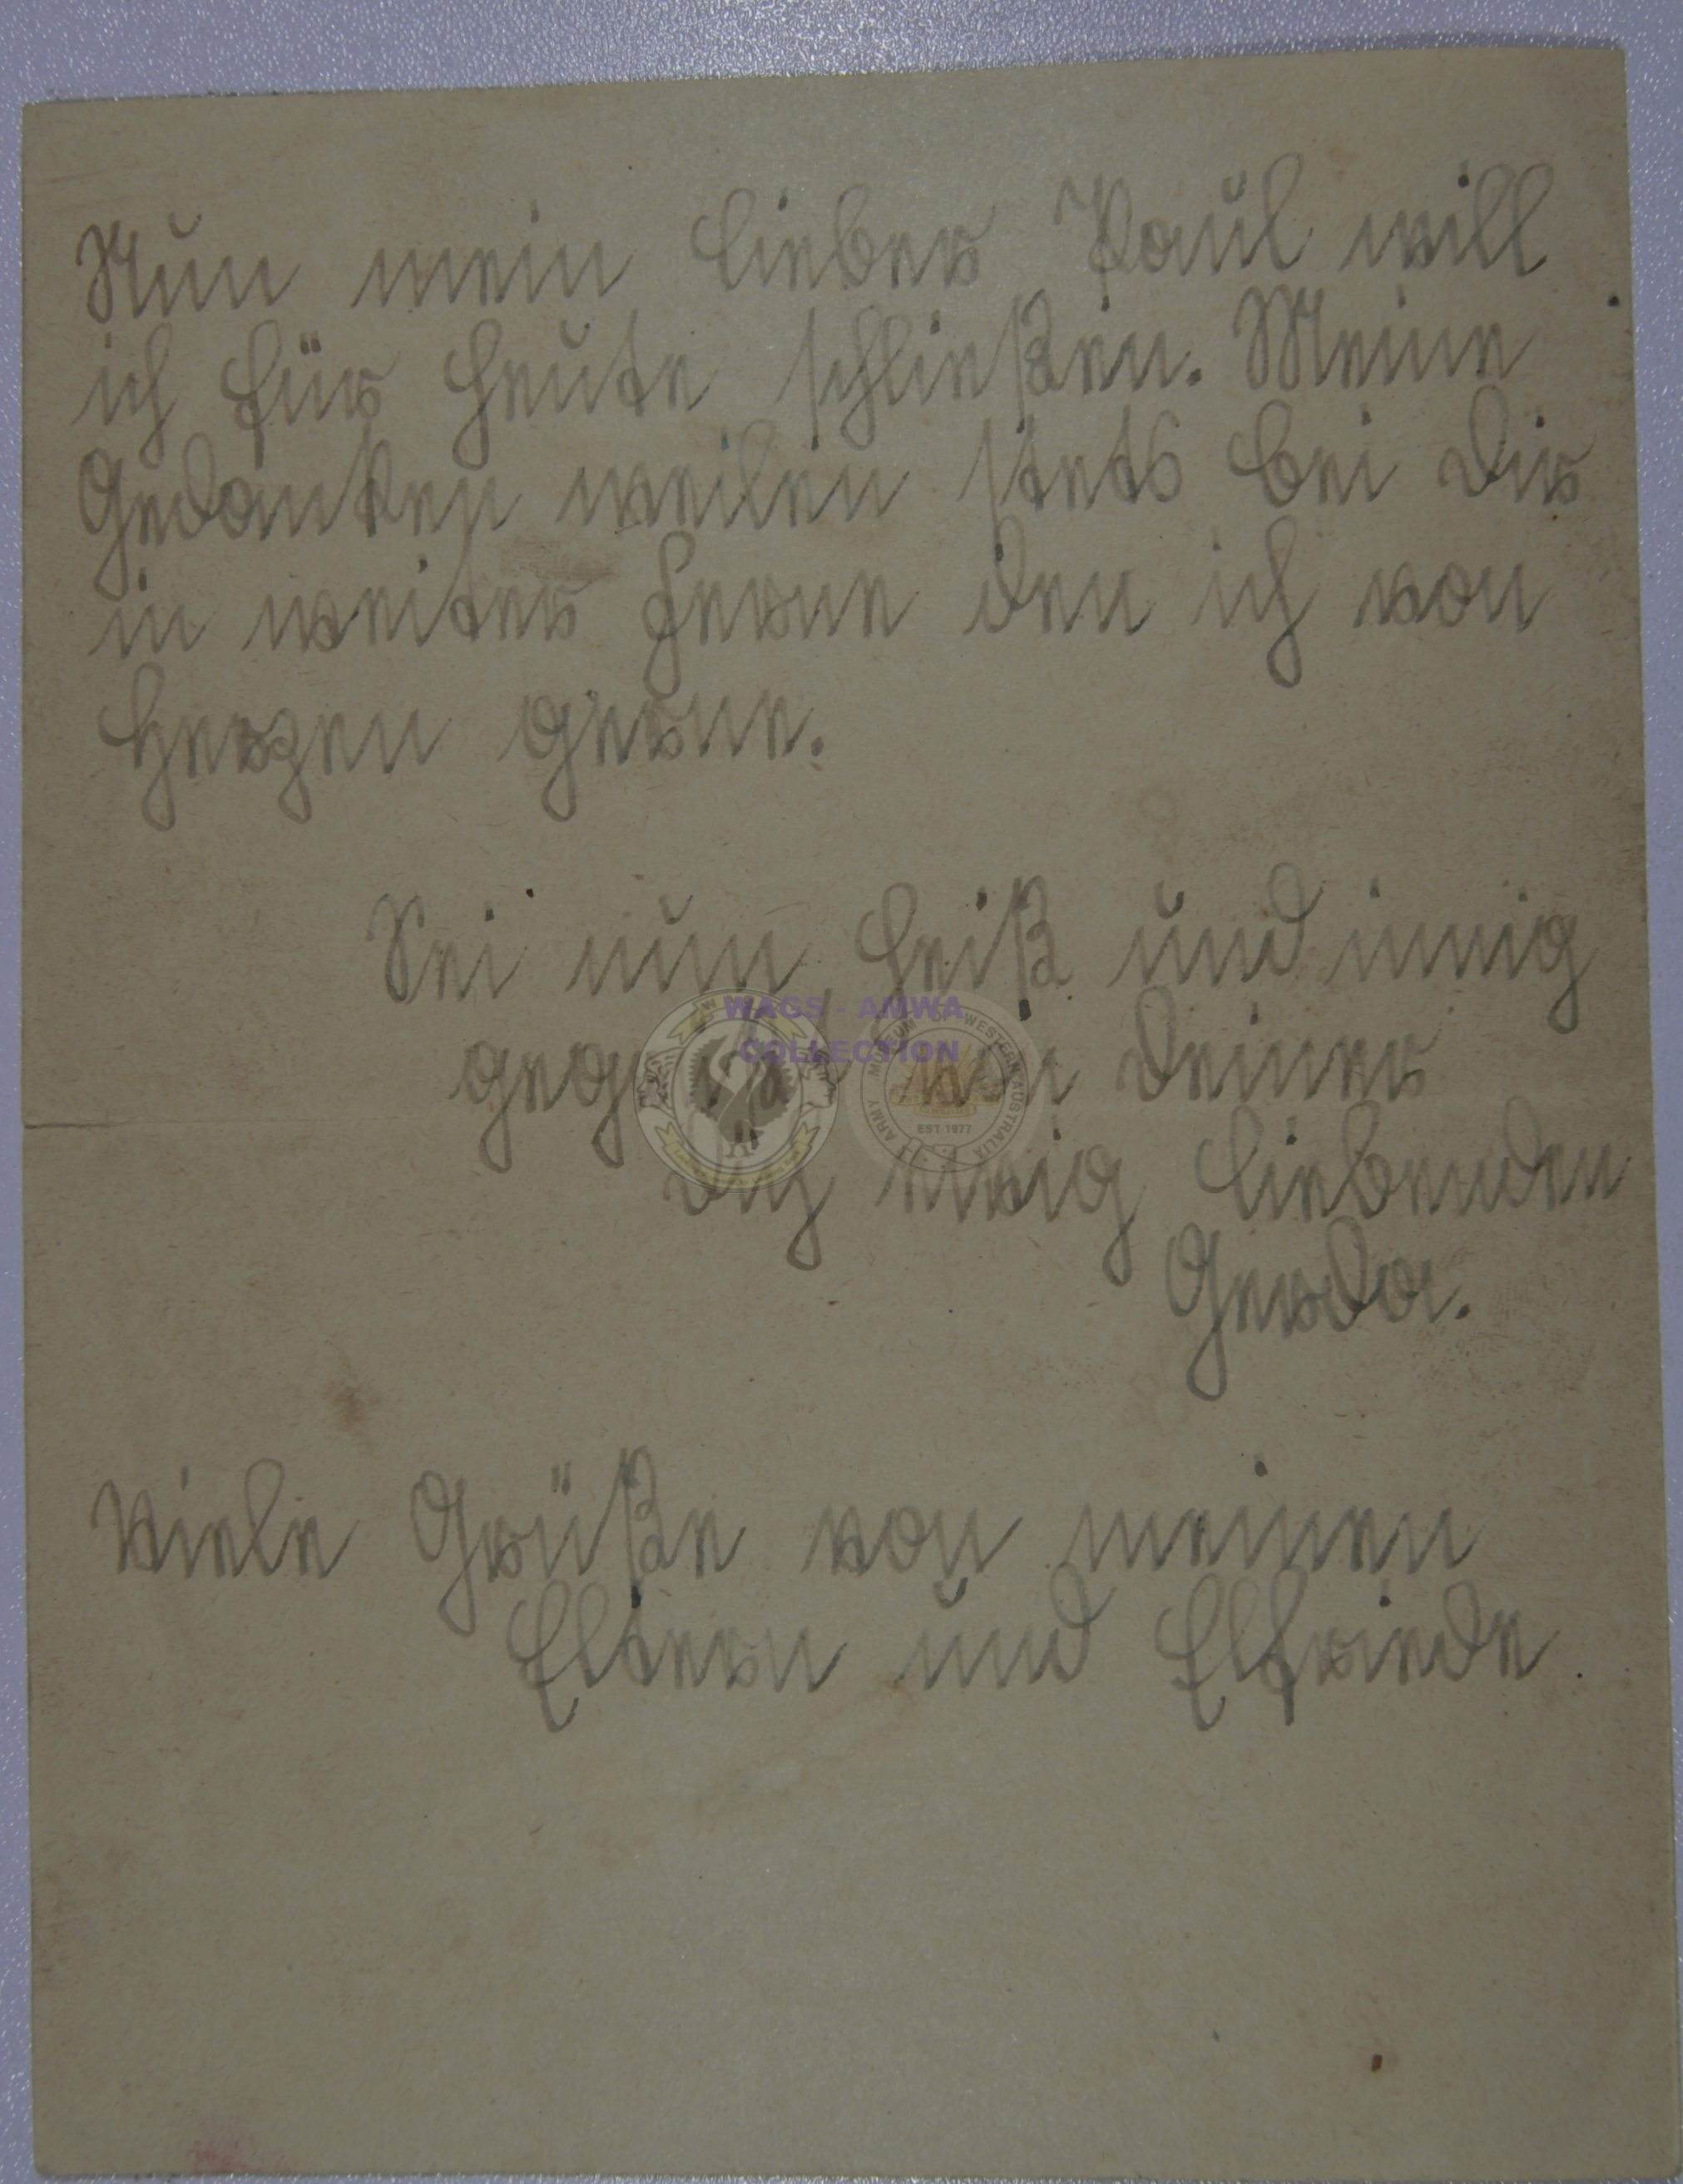 Nun mein lieber Paul will
ich für heute schließen. Meine
Gedanken weilen stets bei Dir
in weiter Ferne den ich von
Herzen gerne.
Sei nun heiß und innig
von Deiner
Dich ewig liebenden
Gerda.
Viele Grüße von meinen
Eltern und Elfriede
WAGS - AMWA
COLLECTION
ARMY MUSEUM OF WESTERN AUSTRALIA
EST 1977